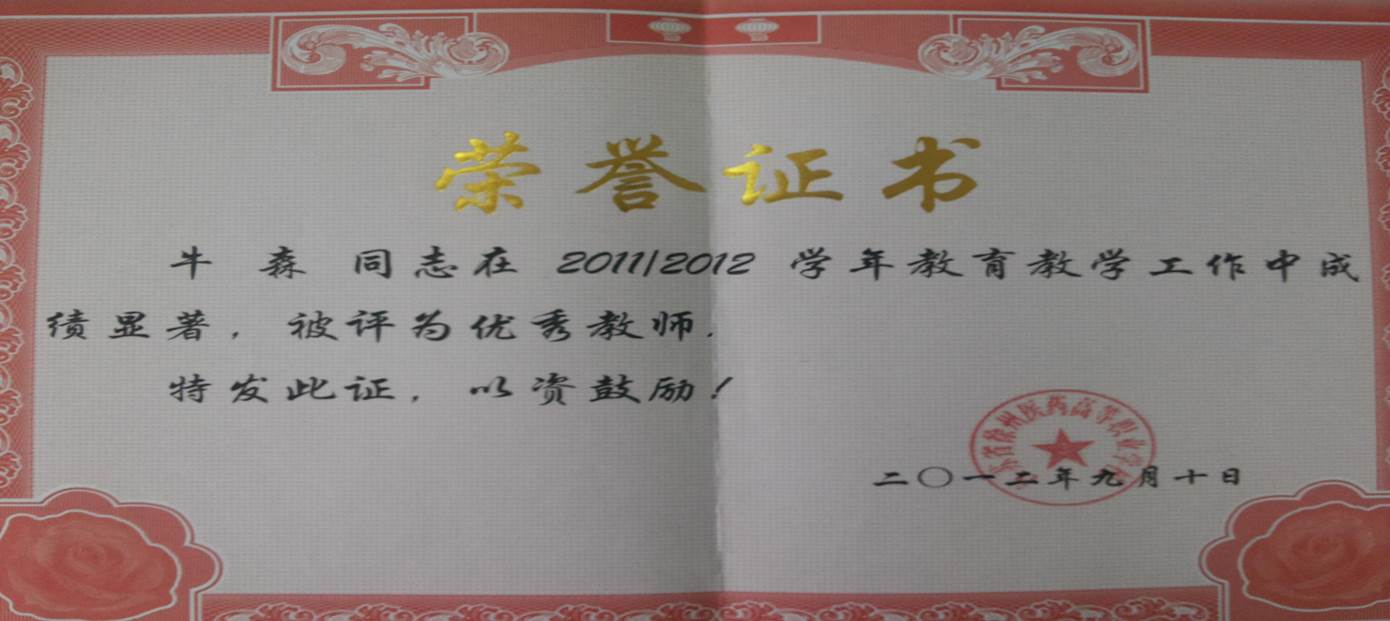 荣誉证书
牛 森 同志在 2011/2012 学年教育教学工作中成
绩显著，被评为优秀教师.
特发此证，以资鼓励！
苏省徐州医药高等职业学
二〇一二年九月十日